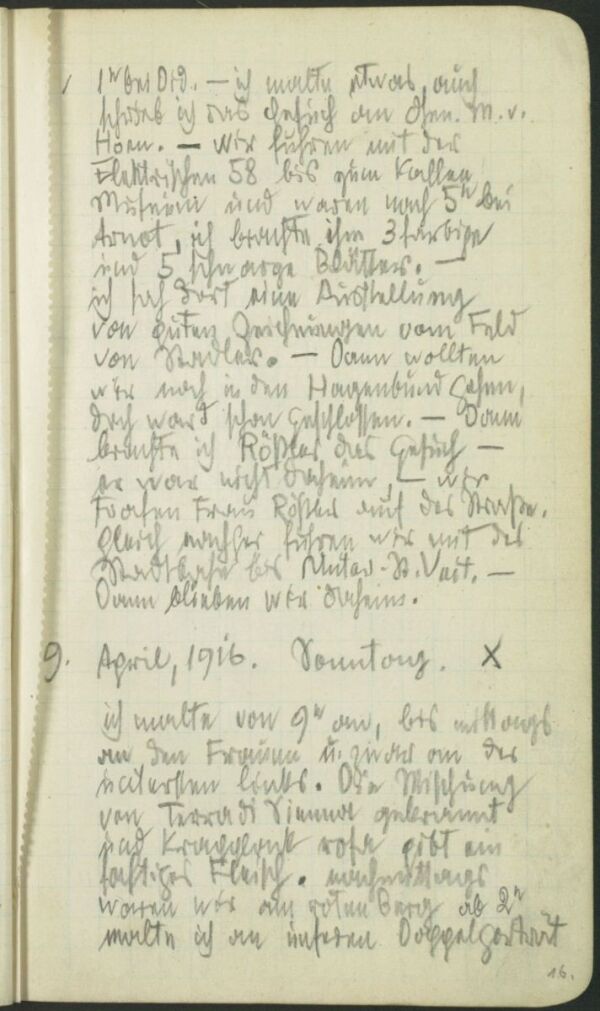 1ʰ bei Ord. — ich malte etwas, auch
schrieb ich das Gesuch an Gen. M. v.
Hoen. — Wir fuhren mit der
Elektrischen 58 bis zum
Museum und waren nach 5ʰ bei
Arnot, ich brachte ihm 3 farbige
und 5 schwarze Blätter. —
ich sah dort eine Ausstellung
von guten Zeichnungen vom Feld
von Stadler. — Dann wollten
wir noch in den Hagenbund gehen,
doch ward schon geschlossen. — Dann
brachte ich Rößler das Gesuch —
er war nicht daheim, — wir
trafen Frau Rößler auf der Straße.
Gleich nachher fuhren wir mit der
Stadtbahn bis Unter-St. Veit. —
Dann blieben wir daheim.
9. April, 1916. Sonntag. X
ich malte von 9ʰ an, bis mittags
an den Frauen u. zwar an der
untersten links. Die Mischung
von Terra di Sienna gebrannt
und Krapplack rosa gibt ein
saftiges Fleisch. nachmittags
waren wir am roten Berg ab 2ʰ
malte ich an unseren Doppelporträt
16.